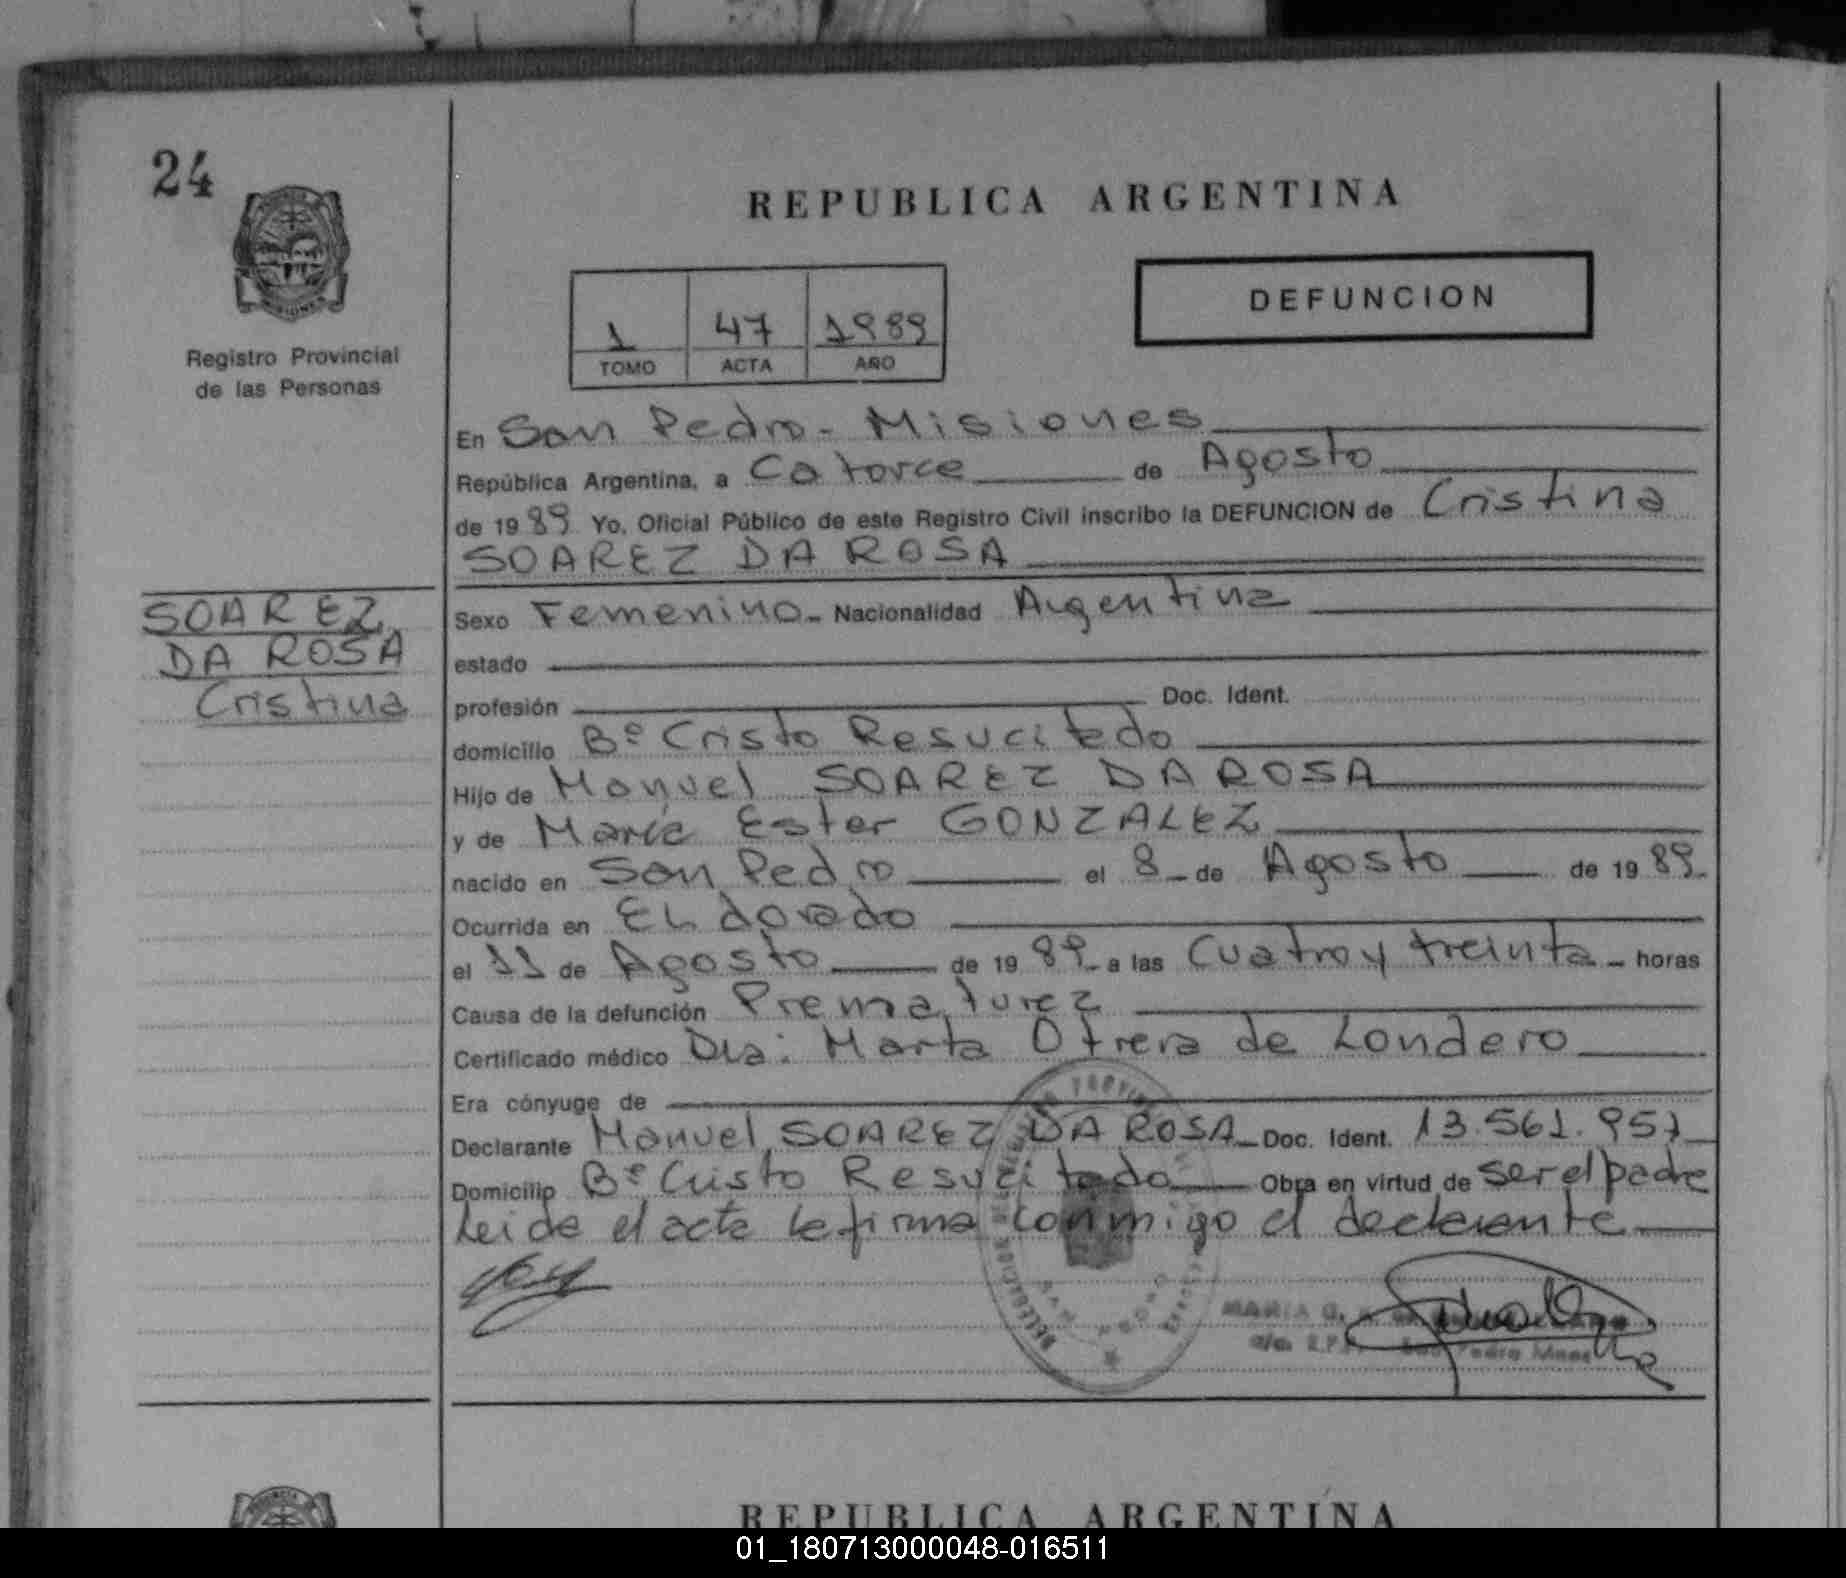 24
REPUBLICA ARGENTINA
DEFUNCION
1 47 1989
TOMO ACTA AÑO
Registro Provincial
de las Personas
En San Pedro - Misiones
República Argentina, a Catorce de Agosto
de 1989 Yo, Oficial Público de este Registro Civil inscribo la DEFUNCION de Cristina
SOAREZ DA ROSA
SOAREZ
DA ROSA
Cristina
Sexo Femenino - Nacionalidad Argentina
estado
profesión Doc. Ident.
domicilio Bº Cristo Resucitado
Hijo de Manuel SOAREZ DA ROSA
y de María Ester GONZALEZ
nacido en San Pedro el 8 de Agosto de 1989
Ocurrida en ELdorado
el 11 de Agosto de 1989 a las Cuatro y treinta - horas
Causa de la defunción Prematurez
Certificado médico Dra: Marta Otrera de Londero
Era cónyuge de
Declarante Manuel SOAREZ DA ROSA - Doc. Ident. 13.561.957
Domicilio Bº Cristo Resucitado Obra en virtud de ser el padre
Leida el acta la firma conmigo el declarante
MARIA G.
San Pedro Mnes
REPUBLICA ARGENTINA
01_180713000048-016511